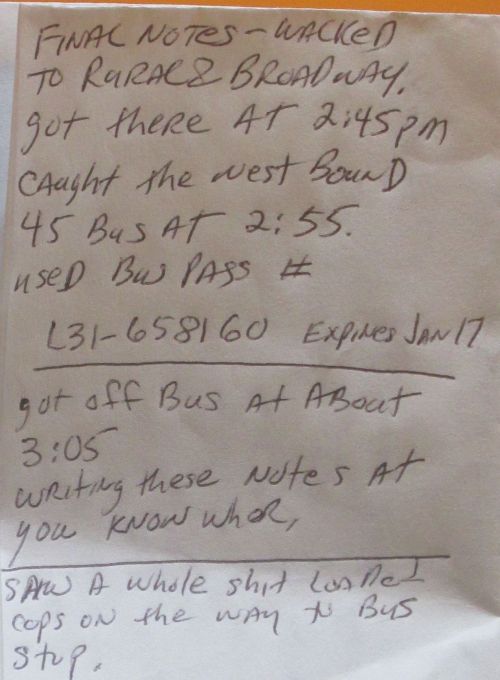 FINAL NOTES - WALKED
TO RURAL & BROADWAY.
got there At 2:45pm
CAught the west BounD
45 Bus AT 2:55.
useD Bus PAss #
L31-658160 Expires JAN 17
got off Bus At ABout
3:05
writing these notes At
you know wher,
SAW A whole shit LoadeD
cops on the way to Bus
stop.